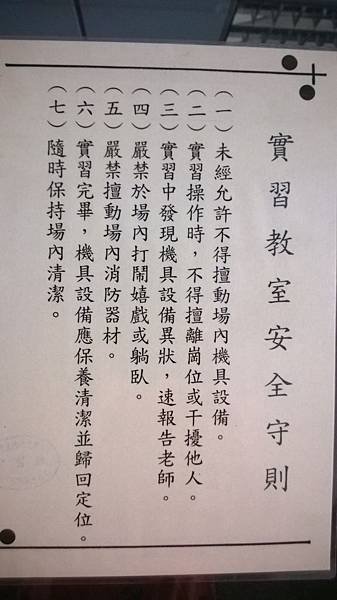 實習教室安全守則
(一)未經允許不得擅動場內機具設備。
(二)實習操作時，不得擅離崗位或干擾他人。
(三)實習中發現機具設備異狀，速報告老師。
(四)嚴禁於場內打鬧嬉戲或躺臥。
(五)嚴禁擅動場內消防器材。
(六)實習完畢，機具設備應保養清潔並歸回定位。
(七)隨時保持場內清潔。